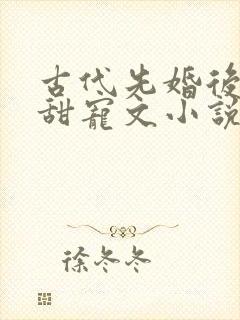 古代先婚後
甜寵文小說
徐冬冬